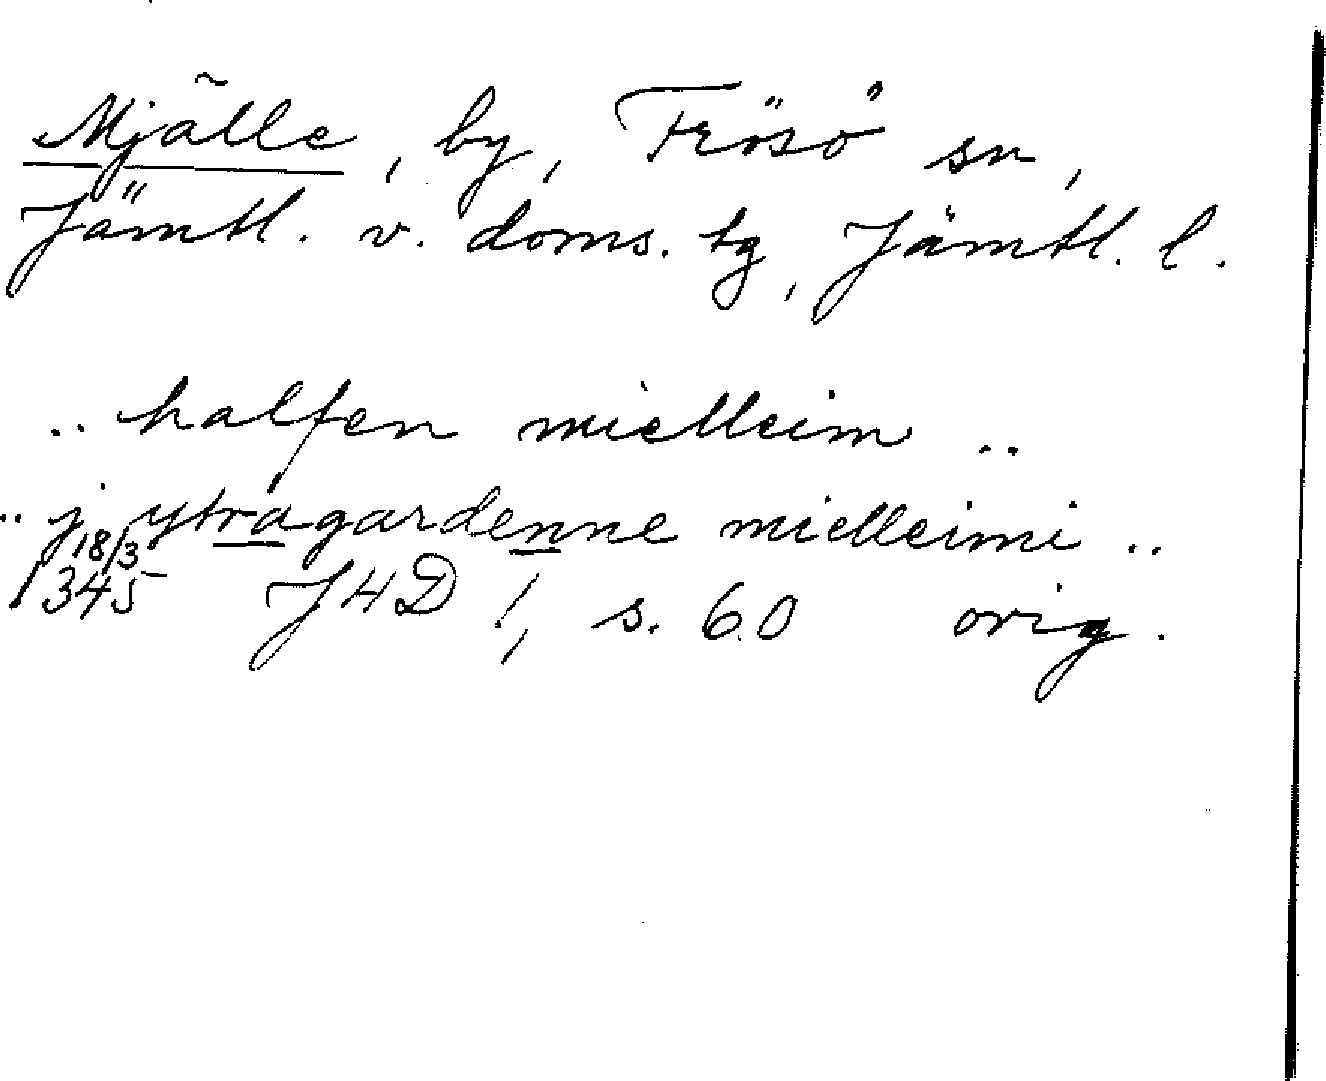 Mjälle, by, Frösö sn,
Jämtl. v. doms. tg, Jämtl. l.
.. halfen mielleim ..
.. j ytragardenne mielleimi ..
18/3 1345 JHD 1, s. 60 orig.